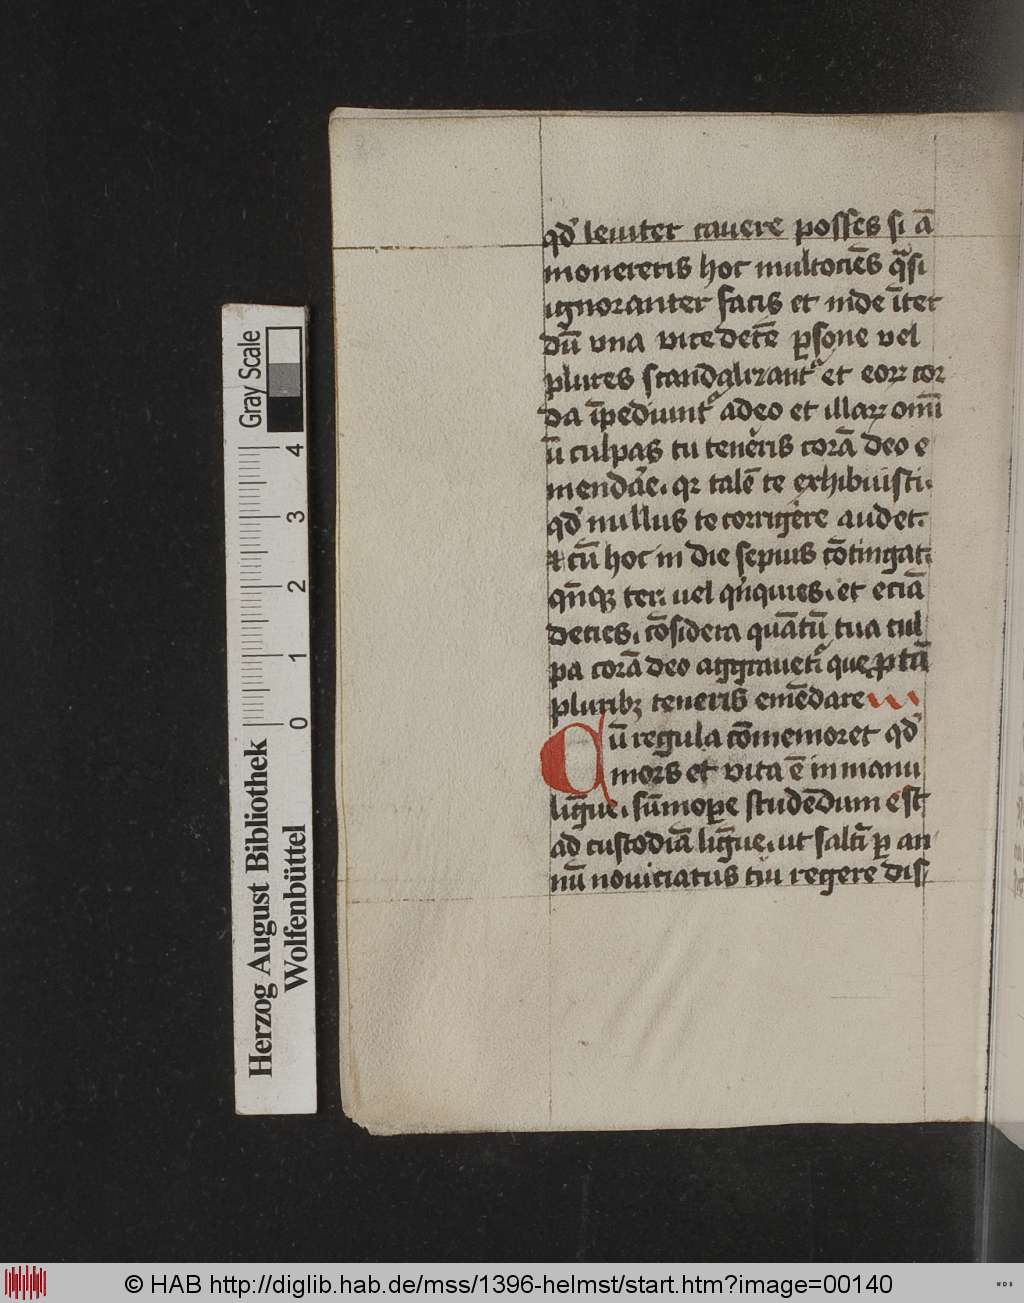 qd̕ leuiter cauere posses si ā
monereris hoc multociēs q̄si
ignoranter facis et inde īter
dū vna vice detē ꝑsone vel
plures scandalizant᷑ et eoꝝ cor
da īpediunt᷑ adeo et illaꝝ omī
ū culpas tu teneris corā deo e
mendare. qꝛ talē te exhibuisti.
qd̕ nullus te corrigere audet.
⁊ cū hoc in die sepius cōtingat.
qn̄qꝫ ter. uel qͥnquies. et eciā
decies. cōsidera quātū tua cul
pa corā deo aggrauet᷑ que ꝓ tū
pluribꝫ teneris emēdare
Cū regula cōmemoret qd̕
mors et vita ē in manu
liḡue. sūmoꝑe studēdum est
ad custodiā liḡue. ut saltī ꝑ an
nū nouiciatus tui regere dis
Gray Scale
4
3
2
1
0
Herzog August Bibliothek
Wolfenbüttel
© HAB http://diglib.hab.de/mss/1396-helmst/start.htm?image=00140
WDB